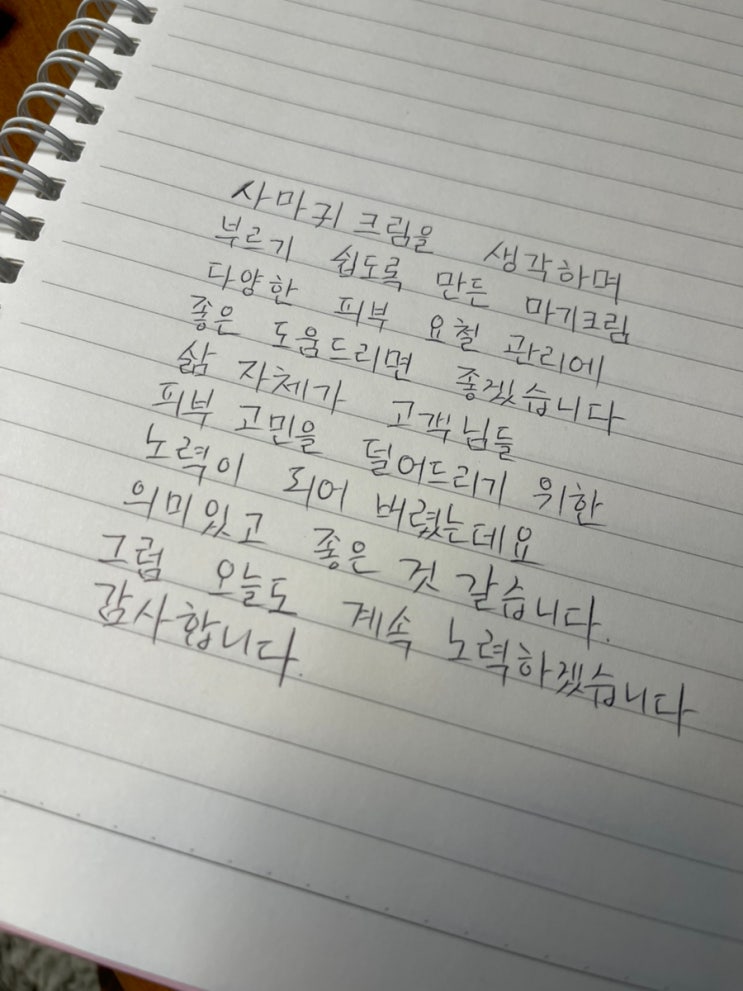 사마귀 크림을 생각하며
부르기 쉽도록 만든 마기크림
다양한 피부 요철 관리에
좋은 도움드리면 좋겠습니다
삶 자체가 고객님들
피부 고민을 덜어드리기 위한
노력이 되어 버렸는데요
의미있고 좋은 것 같습니다.
그럼 오늘도 계속 노력하겠습니다
감사합니다.